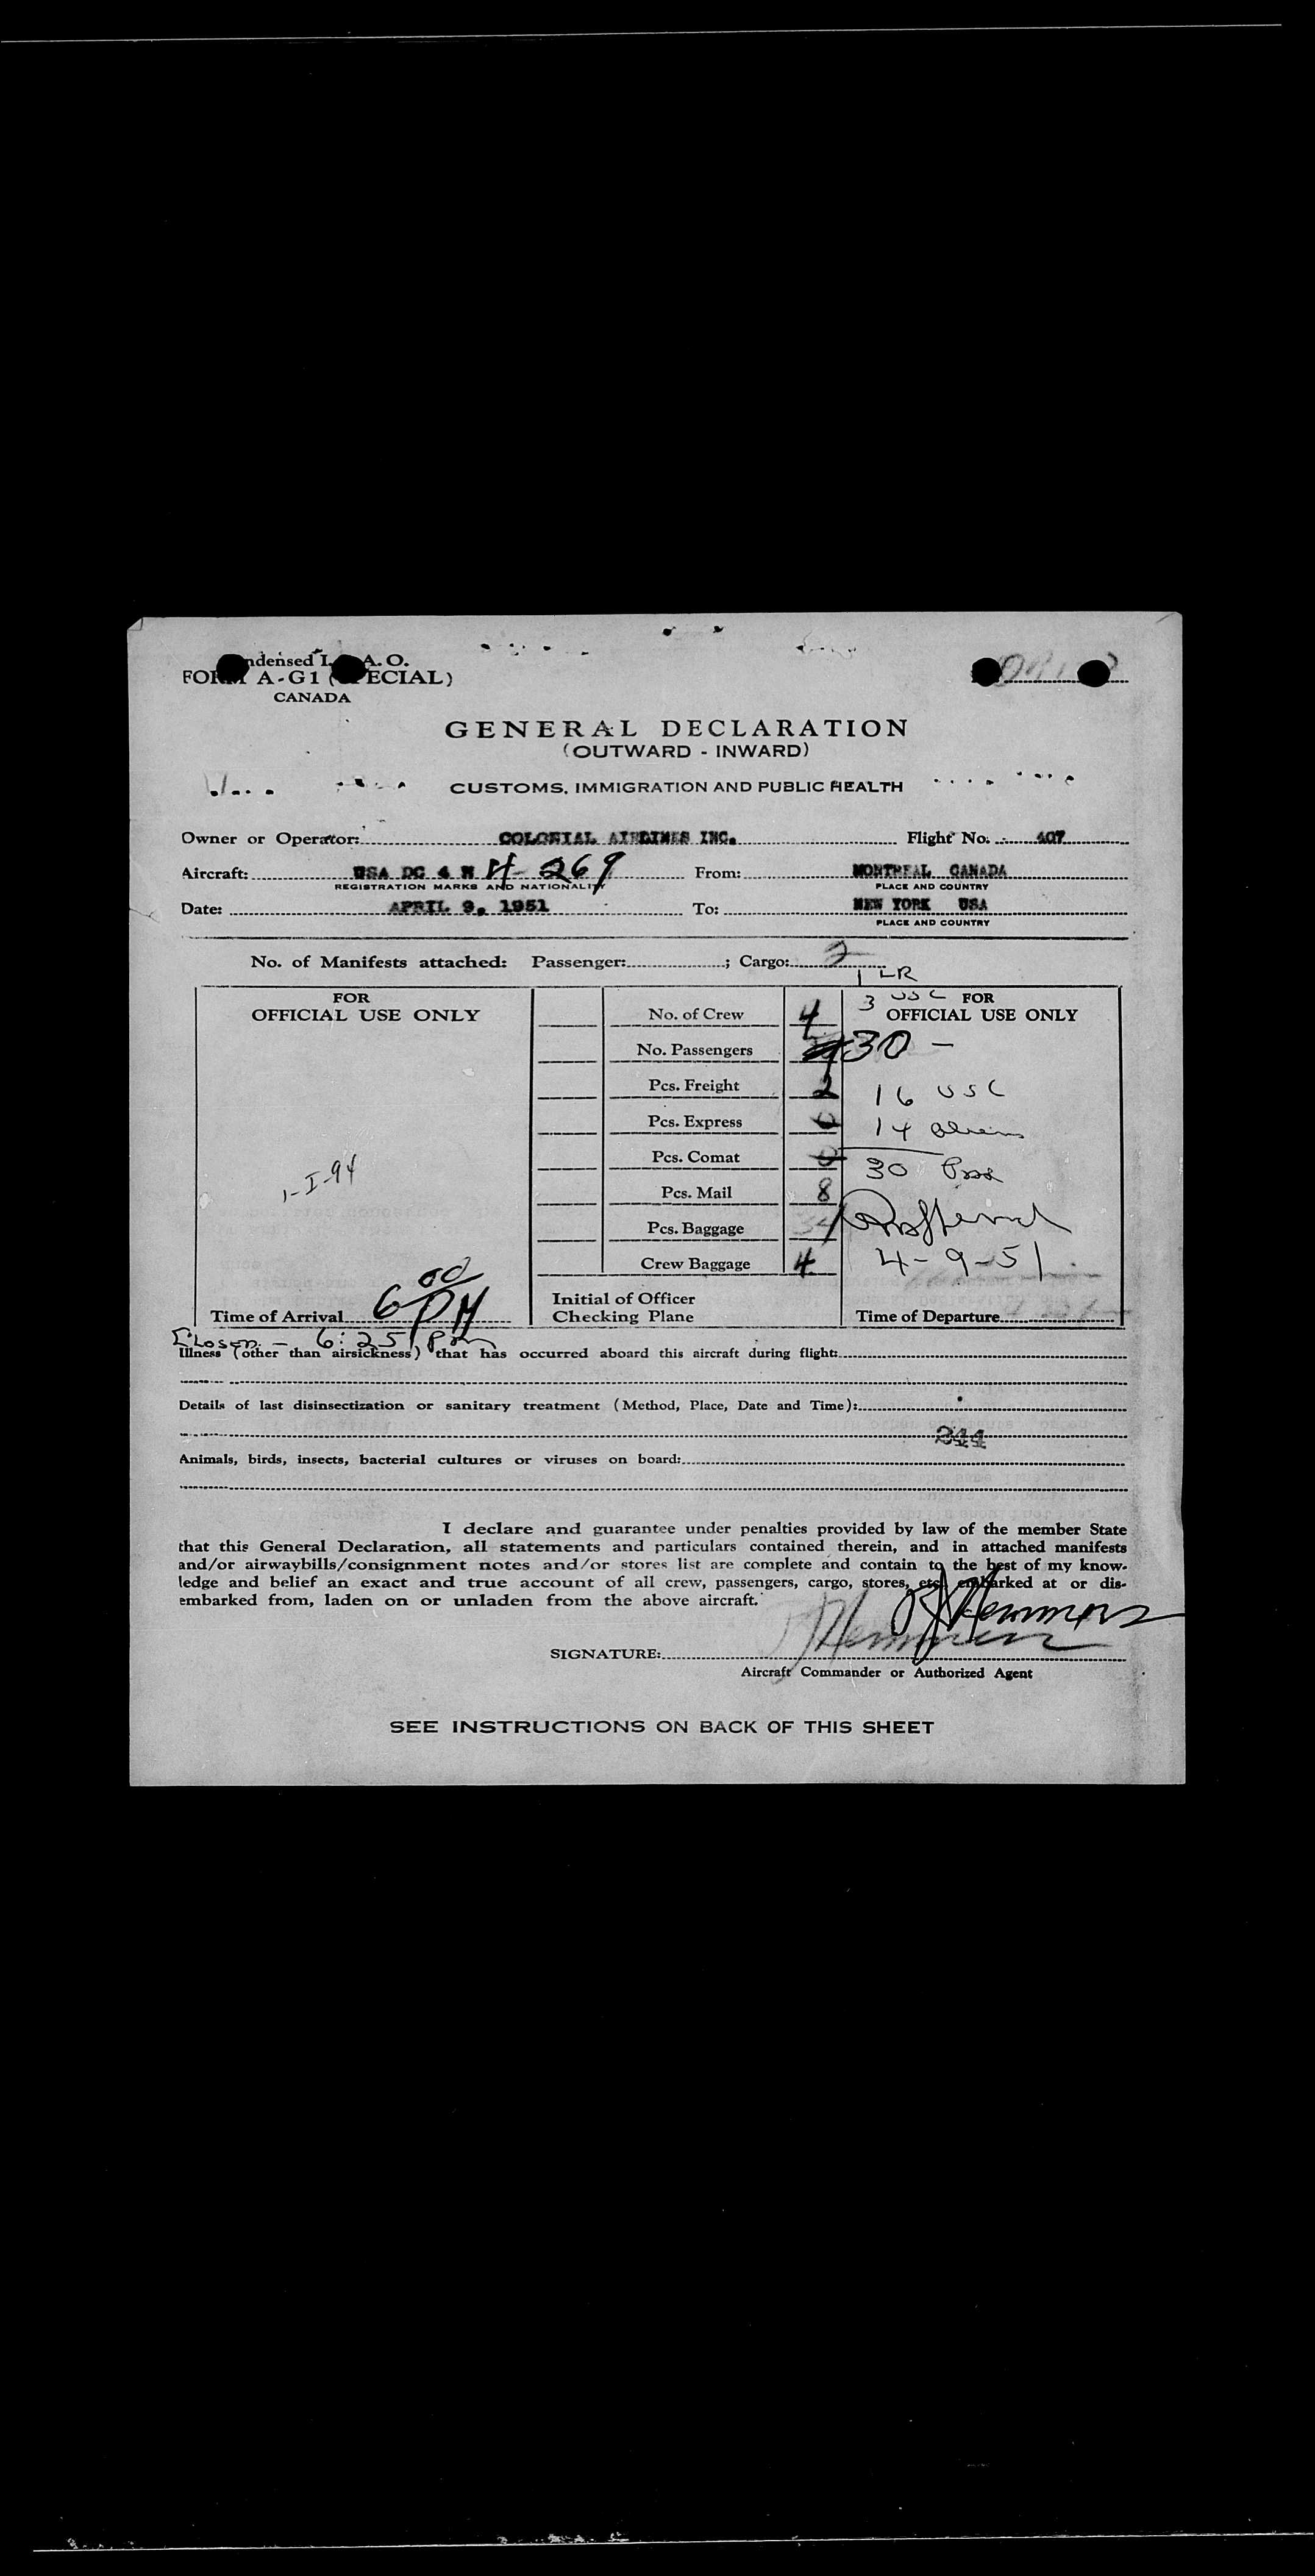 ndensed I. A. O.
FORM A-G1 (SPECIAL)
CANADA
GENERAL DECLARATION
(OUTWARD - INWARD)
CUSTOMS, IMMIGRATION AND PUBLIC HEALTH
Owner or Operator: COLONIAL AIRLINES INC. Flight No. 407
Aircraft: USA DC 4 N 4-269 From: MONTREAL CANADA
REGISTRATION MARKS AND NATIONALITY PLACE AND COUNTRY
Date: APRIL 9, 1951 To: NEW YORK USA
PLACE AND COUNTRY
No. of Manifests attached: Passenger: ; Cargo: 2
1 LR
FOR 3 USC FOR
OFFICIAL USE ONLY No. of Crew 4 OFFICIAL USE ONLY
No. Passengers 30 -
Pcs. Freight 2 16 USC
Pcs. Express 0 14 aliens
Pcs. Comat 0 30 Pass
1-I-94 Pcs. Mail 8
Pcs. Baggage 34
Crew Baggage 4 4-9-51
Initial of Officer
Time of Arrival 6 00 PM Checking Plane Time of Departure
Closed - 6:25 Pm
Illness (other than airsickness) that has occurred aboard this aircraft during flight:
Details of last disinsectization or sanitary treatment (Method, Place, Date and Time):
244
Animals, birds, insects, bacterial cultures or viruses on board:
I declare and guarantee under penalties provided by law of the member State
that this General Declaration, all statements and particulars contained therein, and in attached manifests
and/or airwaybills/consignment notes and/or stores list are complete and contain to the best of my know-
ledge and belief an exact and true account of all crew, passengers, cargo, stores, etc. embarked at or dis-
embarked from, laden on or unladen from the above aircraft.
SIGNATURE:
Aircraft Commander or Authorized Agent
SEE INSTRUCTIONS ON BACK OF THIS SHEET